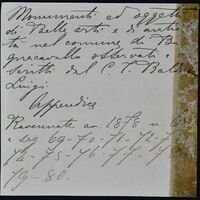 Monumenti ed oggetti
di Belle arti e di antichi
tà nel comune di Ba
gnacavallo osservati e
scritti dal C. T. Baldi
Luigi.
Appendice
Ravennate an. 1878 n.
e seg. 69-70-71-72-7
74-75-76-77-78
79-80.